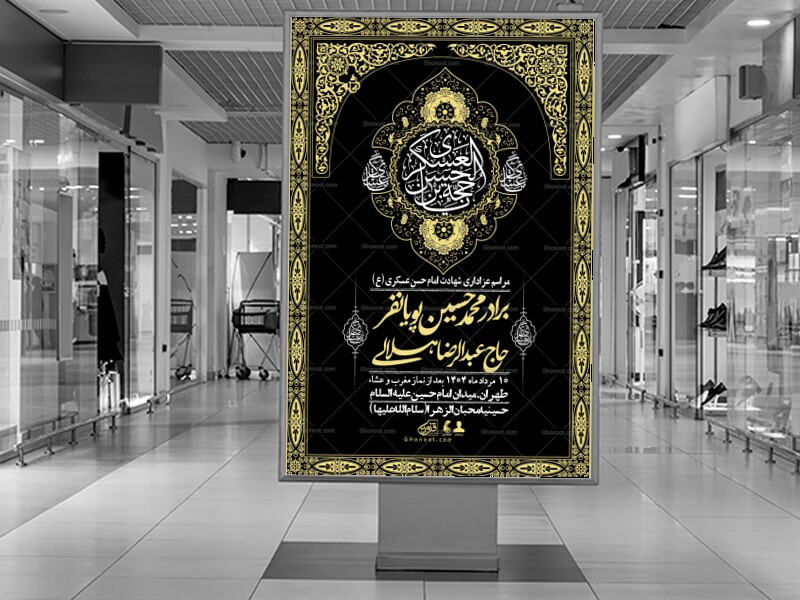 مراسم عزاداری شهادت امام حسن عسکری (ع)
برادر محمد حسین پویانفر
حاج عبدالرضا هلالی
۱۰ مرداد ماه ۱۴۰۴ بعد از نماز مغرب و عشاء
طهران.میدان امام حسین علیه السلام
حسینیه محبان الزهرا (سلام الله علیها)
GHonoot.com